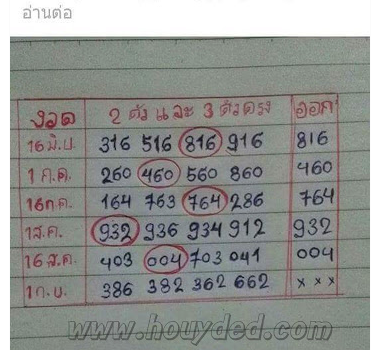 อ่านต่อ
งวด 2 ตัว และ 3 ตัวตรง ออก
16 มิ.ย. 316 516 816 916 816
1 ก.ค. 260 460 560 860 460
16 ก.ค. 164 763 764 286 764
1 ส.ค. 932 936 934 912 932
16 ส.ค. 403 004 703 041 004
1 ก.ย. 386 382 362 662 x x x
www.houyded.com